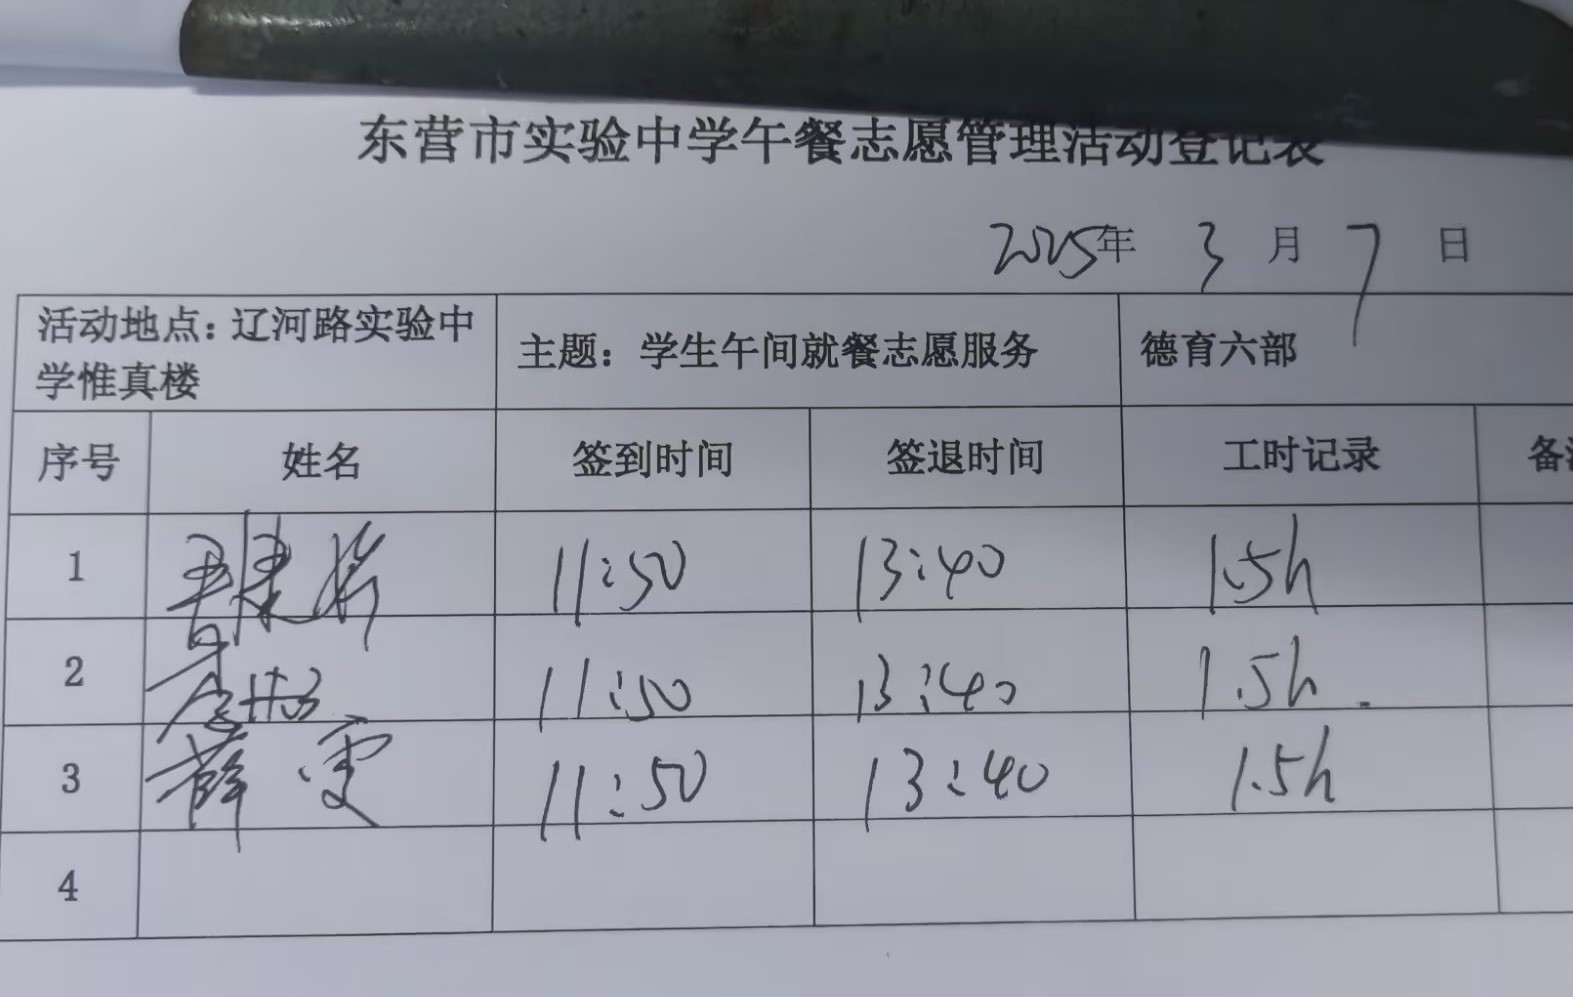 东营市实验中学午餐志愿管理活动登记表
2025年 3 月 7 日
活动地点：辽河路实验中学惟真楼 主题：学生午间就餐志愿服务 德育六部
序号 姓名 签到时间 签退时间 工时记录 备
1 11:50 13:40 1.5h
2 11:50 13:40 1.5h.
3 薛雯 11:50 13:40 1.5h
4